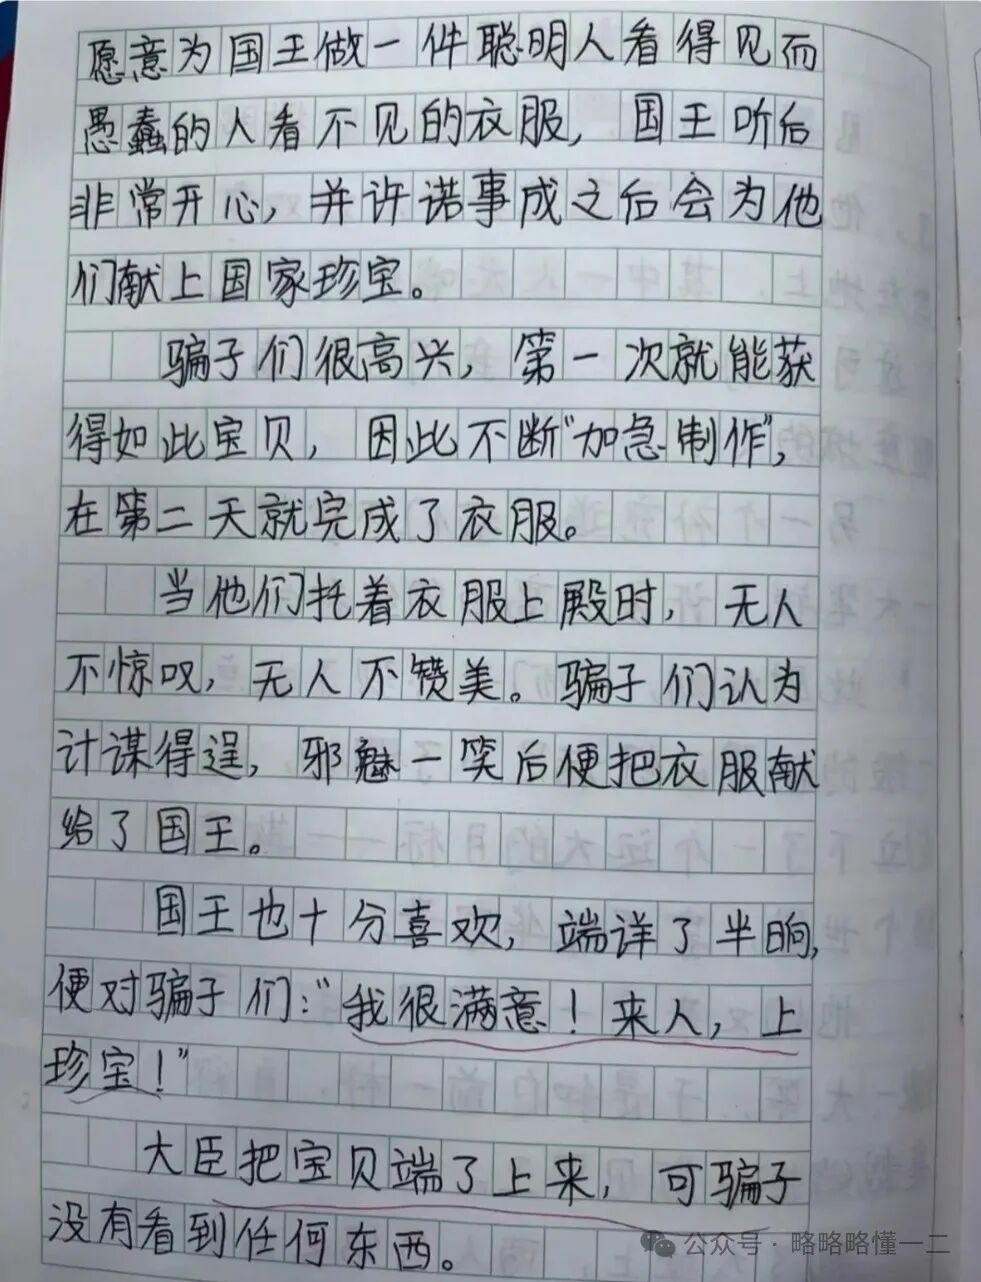 愿意为国王做一件聪明人看得见而
愚蠢的人看不见的衣服，国王听后
非常开心，并许诺事成之后会为他
们献上国家珍宝。
骗子们很高兴，第一次就能获
得如此宝贝，因此不断“加急制作”，
在第二天就完成了衣服。
当他们托着衣服上殿时，无人
不惊叹，无人不赞美。骗子们认为
计谋得逞，邪魅一笑后便把衣服献
给了国王。
国王也十分喜欢，端详了半晌，
便对骗子们：“我很满意！来人，上
珍宝！”
大臣把宝贝端了上来，可骗子
没有看到任何东西。
公众号·略略略懂一二